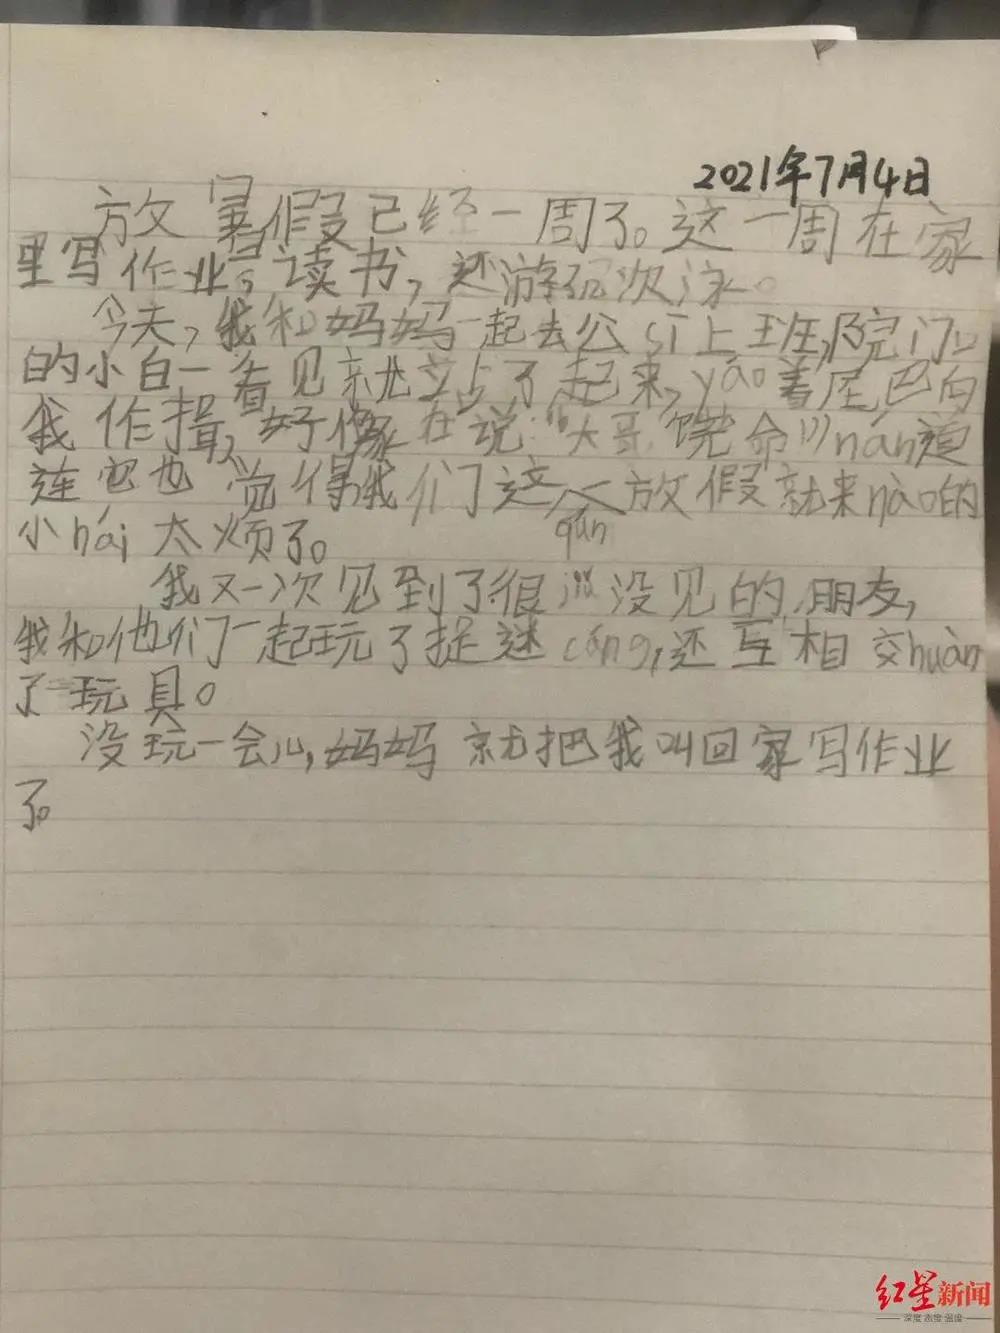 2021年7月4日
放暑假已经一周了。这一周在家
里写作业,读书,还游了次泳。
今天,我和妈妈一起去公司上班,院门口
的小白一看见就站了起来,yáo着尾巴向
我作揖,好像在说:“大哥饶命!”nán道
连它也觉得我们这qún一放假就来nào的
小hái太烦了。
我又一次见到了很没见的朋友,
我和他们一起玩了捉迷cáng,还互相交huàn
了玩具。
没玩一会儿,妈妈就把我叫回家写作业
了。
红星新闻
深度 态度 温度